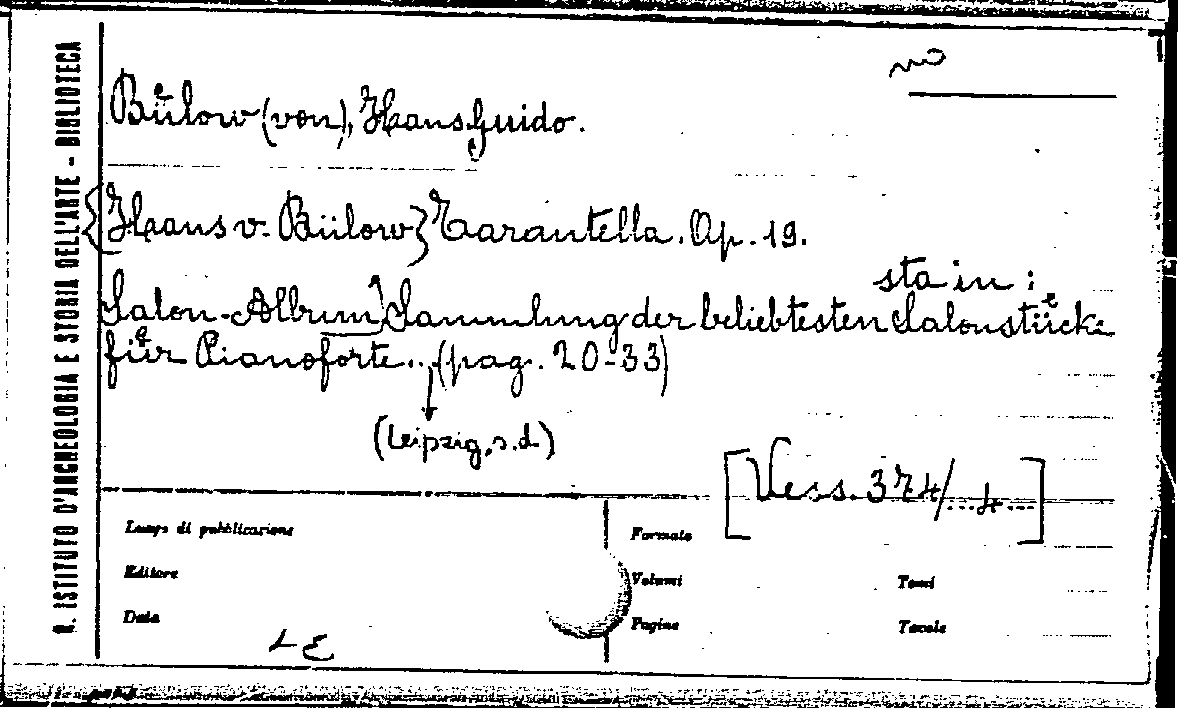 R. ISTITUTO D'ARCHEOLOGIA E STORIA DELL'ARTE - BIBLIOTECA
no
Bülow (von), Hans Guido.
{Hans v. Bülow} Tarantella. Op. 19.
sta in:
Salon-Album] Sammlung der beliebtesten Salonstücke
für Pianoforte.. (pag. 20-33)
(Leipzig, s.d.)
[Vess. 374/..4...]
Luogo di pubblicazione
Formato
Editore
Volumi
Tomi
Data
Pagine
Tavole